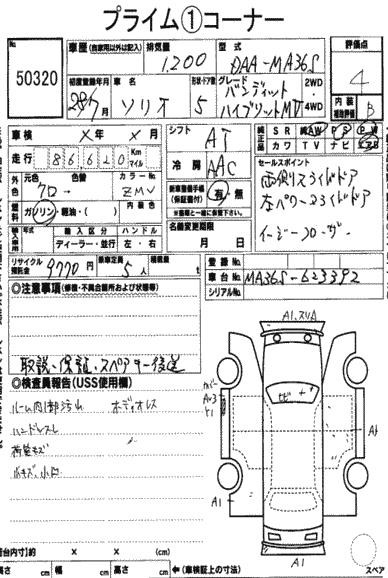 プライム①コーナー
50320
車歴 (自家用以外は記入)
排気量 1,200
型式 DAA-MA36S
評価点 4
初度登録年月
車名 ソリオ
形状・ドア数 5
グレード バンディット
ハイブリットMV
2WD・
4WD
内装 B
補助評価
車検 X年 X月
シフト AT
純正品 SR 純AW PS PW
カワ TV ナビ
走行 86620 Km
マイル
冷房 AAC
セールスポイント
両側スライドドア
外色 元色 色替 カラーNo.
クロ ZMV
新車整備手帳
(保証書付) 有・無
※車歴と一緒に御覧下さい
燃料 ガソリン・軽油・( )
内装色
名義変更期限
月 日
輸入車用 輸入区分 ハンドル
ディーラー・並行 左・右
リサイクル預託金 9770円
乗車定員 5人
積載量 t
登録No.
車台No. MA36S-623392
シリアルNo.
◎注意事項 (修復・不具合箇所および状態等)
取説・保証・スペアキー後送
◎検査員報告 (USS使用欄)
ルーム内1部汚れ ボディオレス
ハンドルスレ
荷室キズ
小キズ、小凹
A1
A1
A1
A1
スペア
荷台内寸)約 x x (cm)
長さ cm 幅 cm 高さ cm ←(車検証上の寸法)